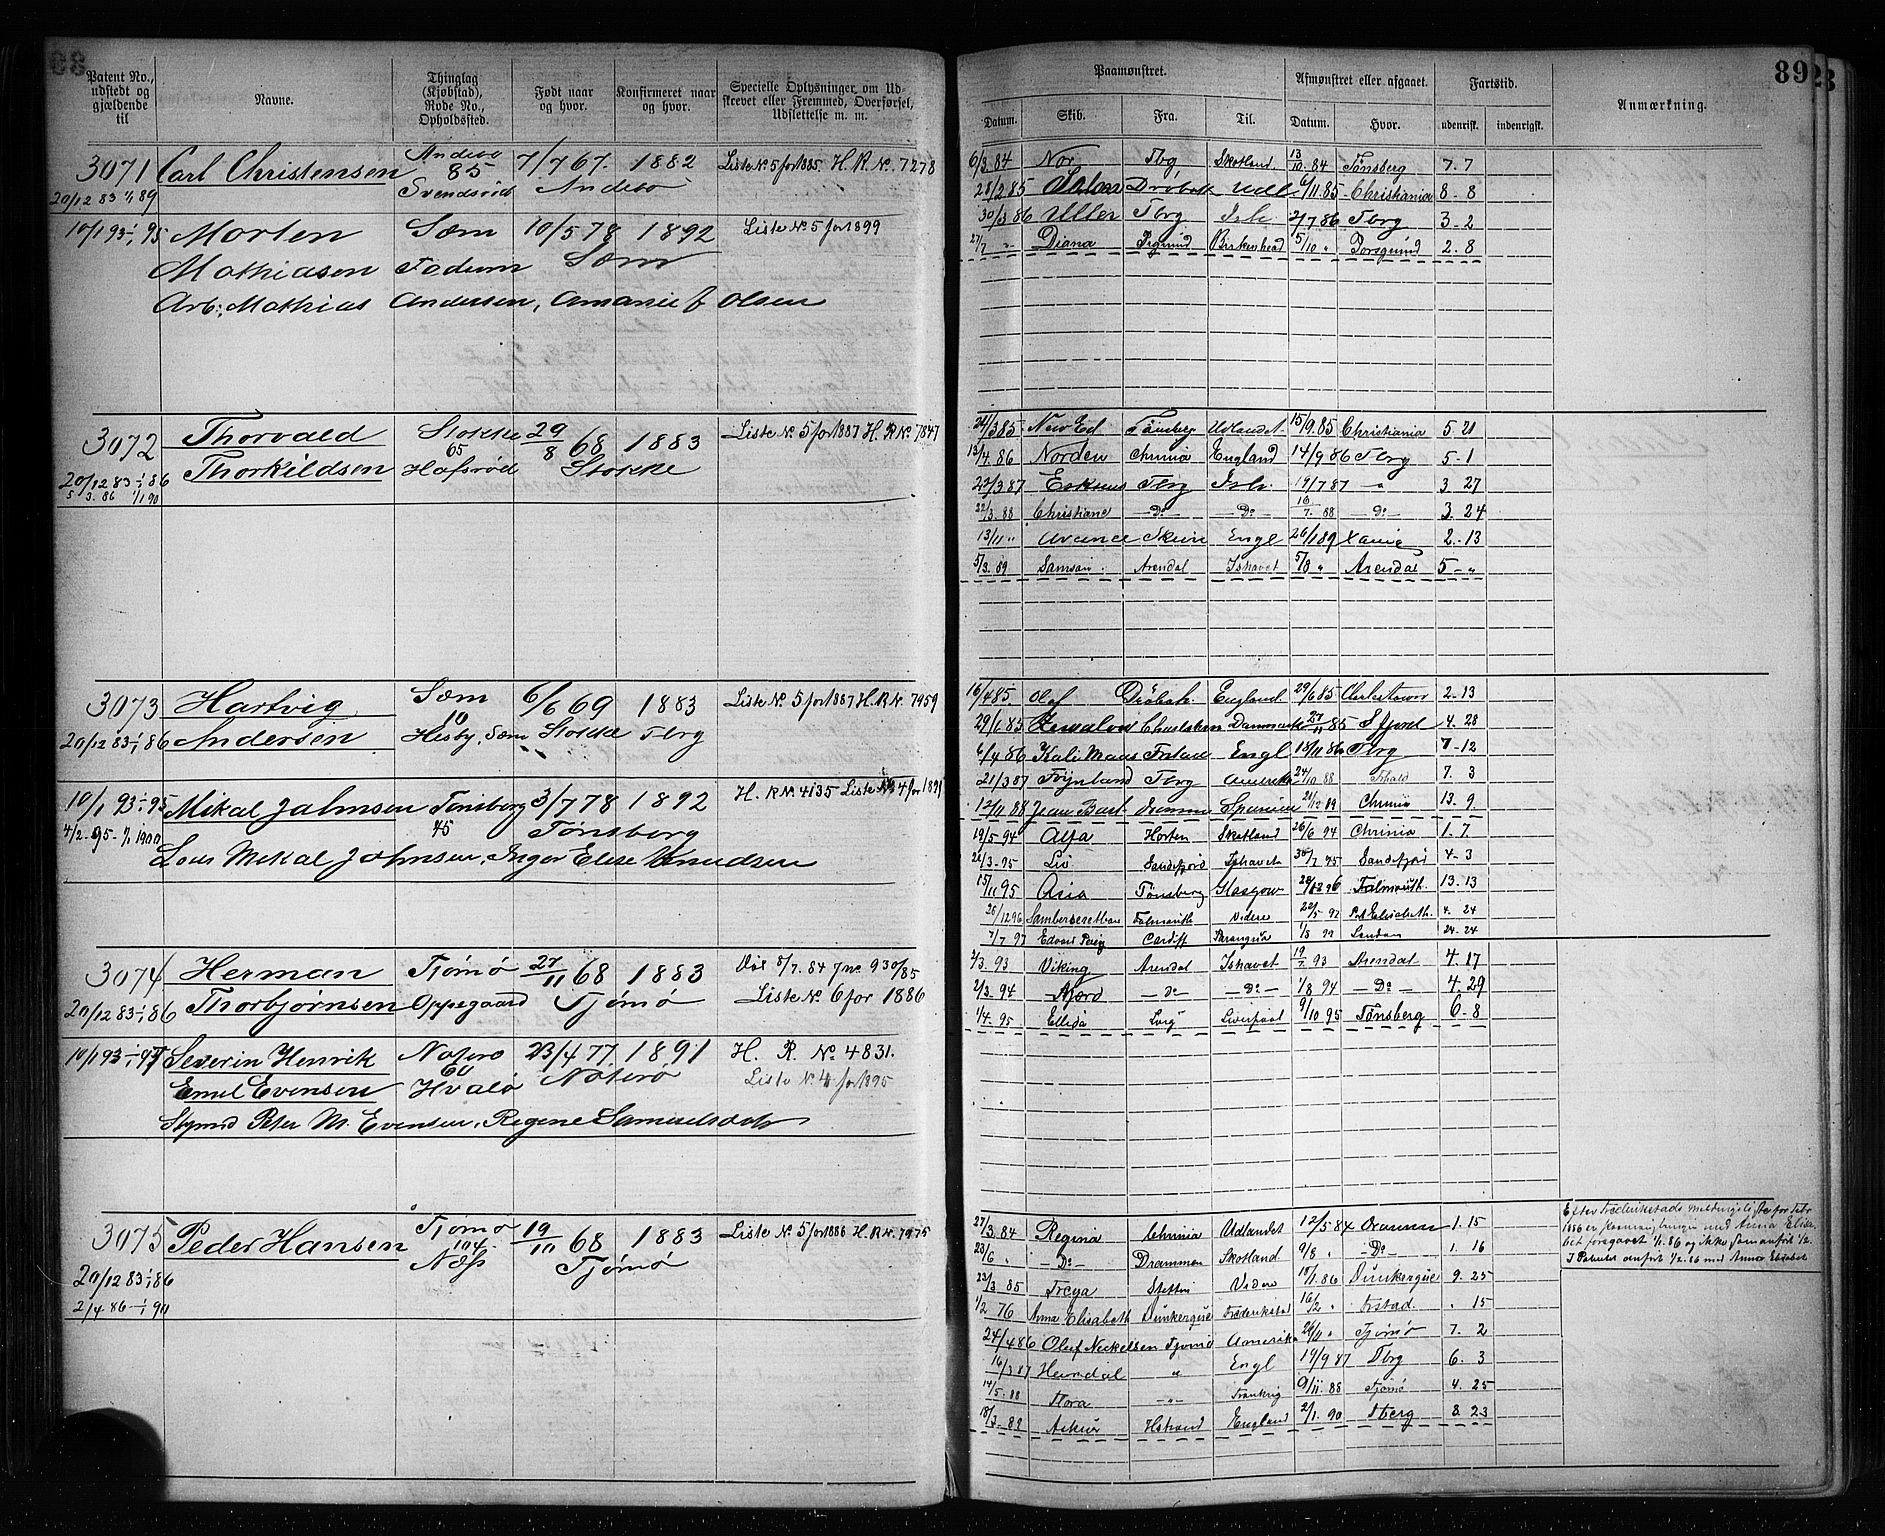 89
Patent No., udstedt og gjældende til
Navne.
Thinglag (Kjøbstad), Rode No., Opholdssted.
Født naar og hvor.
Konfirmeret naar og hvor.
Specielle Oplysninger om Udskrevet eller Fremmed, Overførsel, Udslettelse m. m.
3071 Carl Christensen Andebo 7/7 67. 1882 Liste No. 5 for 1885. H. R. No. 7278
85
20/12 83 1/1 89 Svendsrød Andebo
10/1 93-1/1 95 Morten Sæm 10/5 78 1892 Liste No. 5 for 1899
Mathiasen Sæm
Arb: Mathias Andersen, Olsen
3072 Thorvald Stokke 29/8 68 1883 Liste No. 5 for 1887 H. R. No. 7847
65
20/12 83-1/1 86 Thorkildsen Hafsrød Stokke
5/3. 86 1/1 90
3073 Hartvig Sæm 6/6 69 1883 Liste No. 5 for 1887 H. R. No. 7959
10
20/12 83-1/1 86 Andersen Hesby, Sæm Stokke Tbrg
10/1 93-1/1 95 Mikal Johnsen Tønsberg 3/7 78 1892 H. R. No. 4135 Liste No. 4 for 1899
4/2. 95-1/1 1900 45 Tønsberg
Mikal Johnsen, Inger Elise Knudsen
3074 Herman Tjømø 27/11 68 1883
20/12 83-1/1 86 Thorbjørnsen Oppegaard Tjømø Liste No. 6 for 1886
10/1 93-1/1 95 Severin Henrik Nøterø 23/4 77 1891 H. R. No. 4831.
60
Emil Evensen Hvalø Nøterø Liste No. 4 for 1895
Peter M. Evensen, Regine Samuelsdatter
3075 Peder Hansen Tjømø 19/10 68 1883 Liste No. 5 for 1886 H. R. No. 7975
104
20/12 83-1/1 86 Næs Tjømø
2/4. 86-1/1 90
Paamønstret.
Afmønstret eller afgaaet.
Fartstid.
Anmærkning.
Datum. Skib. Fra. Til. Datum. Hvor. udenrigs. indenrigs.
6/3. 84 Nor Tbg Skotland 13/10. 84 Tønsberg 7. 7
28/2 85 Drøbak Udl 6/11. 85 Christiania 8. 8
30/3 86 Uller Tbrg Ish. 2/7 86 Tbrg 3-2
27/7 " Diana Prsgrund Birkenhead 5/10 " Porsgrund 2. 8
24/3 85 New Ed. Tønsberg Udlandet 15/9. 85 Christiania 5. 21
13/4. 86 Norden Chrnia England 14/9 86 Tbrg 5-1
22/3 87 Tbrg Ish. 19/7 87 — " 3. 27
22/3. 88 Christiane — Do — — Do — 16/7. 88 — Do — 3. 24
13/11 " Skien Engl 26/1 89 Xania 2-13
5/3. 89 Samson Arendal Ishavet 5/8 " Arendal 5-"
16/4 85. Olaf Drøbak England 29/6 85 Charlestown 2-13
29/6 85 Charlestown Danmark 27/11 85 4. 28
6/4 86 Frstad Engl 18/11 86 Tbrg 7-12
21/3 87 Føynland Tbrg Amerika 24/10 88 7. 3
12/11 88 Jean Bart Drammen Spanien 21/12 89 Chrnia 13. 9
19/5 94 Alfa Horten Skotland 26/6 94 Chrnia 1. 7
26/3. 95 Liv Sandefjord Ishavet 30/7 95 Sandefjord 4-3
15/11 95 Asia Tønsberg Glasgow 28/12 96 Falmouth 13. 13
28/12 96 Falmouth Videre 22/5 97 Pt Elisabeth. 4. 24
7/7 97 Cardiff Paranagua 1/8 99 London 24-24
2/3. 93 Viking Arendal Ishavet 19/7 93 Arendal 4. 17
2/3. 94 Njord — Do — — Do — 1/8 94 — Do — 4. 29
1/4. 95 Ellida Liverpool 9/10 95 Tønsberg 6-8
27/3. 84 Regina Chrnia Udlandet 12/5 84 Drammen 1. 15
23/6 " — Do — Drammen Skotland 9/8 " — Do — 1. 16
23/3 85 Freya Stettin Videre 18/1. 86 Dunkerque 9. 25
1/2 76 Anna Elisabeth Dunkerque Frederikstad 16/2 " Frstad. " 15
24/4 86 Oluf Nickelsen Tjømø Amerika 26/11 " Tjømø 7. 2
16/3 87 Heimdal " Engl 19/9 87 Tbrg 6. 3
14/5. 88 Flora — " — Frankrig 9/11. 88 Tjømø 4. 25
18/3. 89 Askur Hstrand England 2/1. 90 Tberg 8. 23
Efter Frederikstads
1886 er med Anna Elisa-
bet 1/1. 86 og ikke 1/2.
1/2. 86 med Anna Elisabet